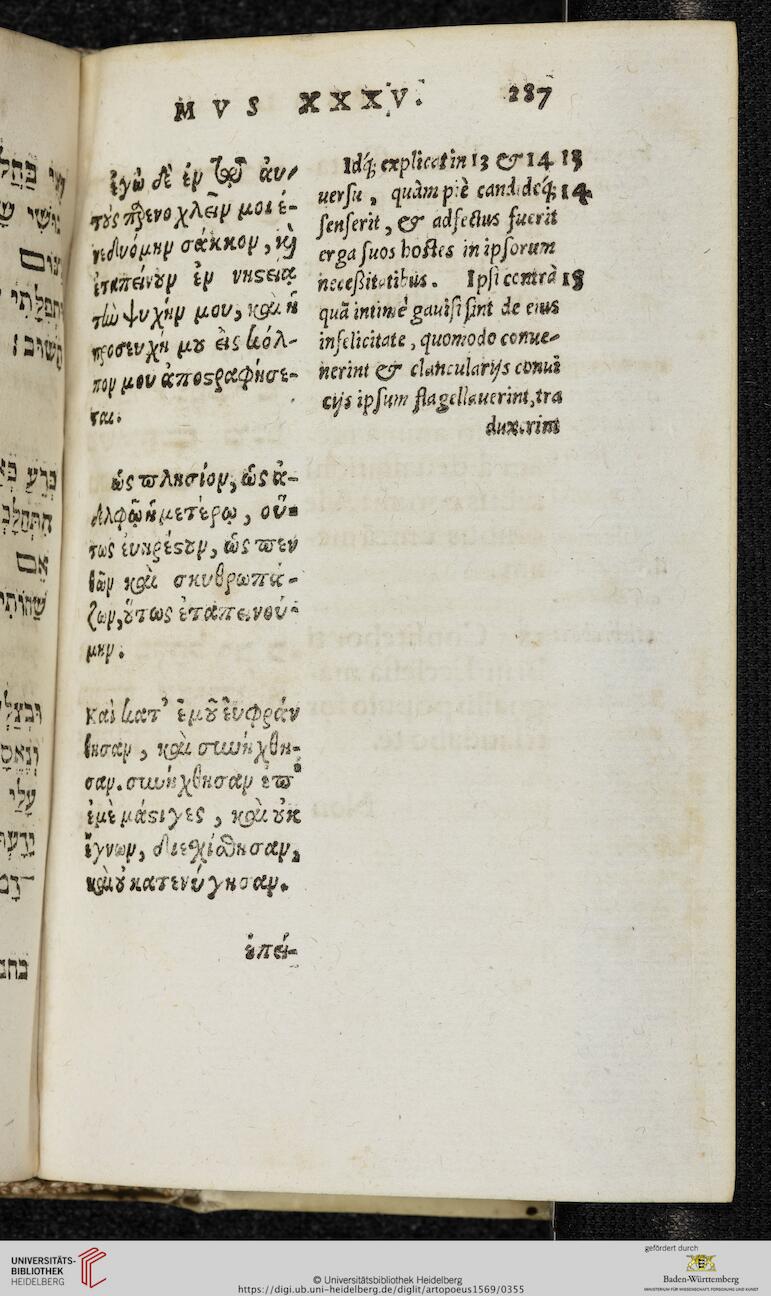 MVS XXXV. 287
ἐγὼ δὲ ἐν τῷ αὐ-
τοὺς παρενοχλεῖν μοι ἐ-
νεδυόμην σάκκον, καὶ
ἐταπείνουν ἐν νηστείᾳ
τὴν ψυχήν μου, καὶ ἡ
προσευχή μου εἰς κόλ-
πον μου ἀποστραφήσε-
ται.
ὡς πλησίον, ὡς ἀ-
δελφῷ ἡμετέρῳ, οὕ-
τως εὐηρέστουν, ὡς πεν
θῶν καὶ σκυθρωπά-
ζων, οὕτως ἐταπεινού-
μην.
καὶ κατ' ἐμοῦ εὐφράν
θησαν, καὶ συνήχθη-
σαν. συνήχθησαν ἐπ'
ἐμὲ μάστιγες, καὶ οὐκ
ἔγνων, διεσχίσθησαν,
καὶ οὐ κατενύγησαν.
ἐπεί-
Idq́; explicat in 13 & 14 13
uersu, quàm piè candideq́; 14
senserit, & adfectus fuerit
erga suos hostes in ipsorum
necessitatibus. Ipsi contrà 15
quā intimè gauisi sint de eius
infelicitate, quomodo conue-
nerint & clancularijs conui
cijs ipsum flagellauerint, tra
duxerint
בְּרֵעַ
אֵם
עָלַי
UNIVERSITÄTS-
BIBLIOTHEK
HEIDELBERG
© Universitätsbibliothek Heidelberg
https://digi.ub.uni-heidelberg.de/diglit/artopoeus1569/0355
gefördert durch
Baden-Württemberg
MINISTERIUM FÜR WISSENSCHAFT, FORSCHUNG UND KUNST